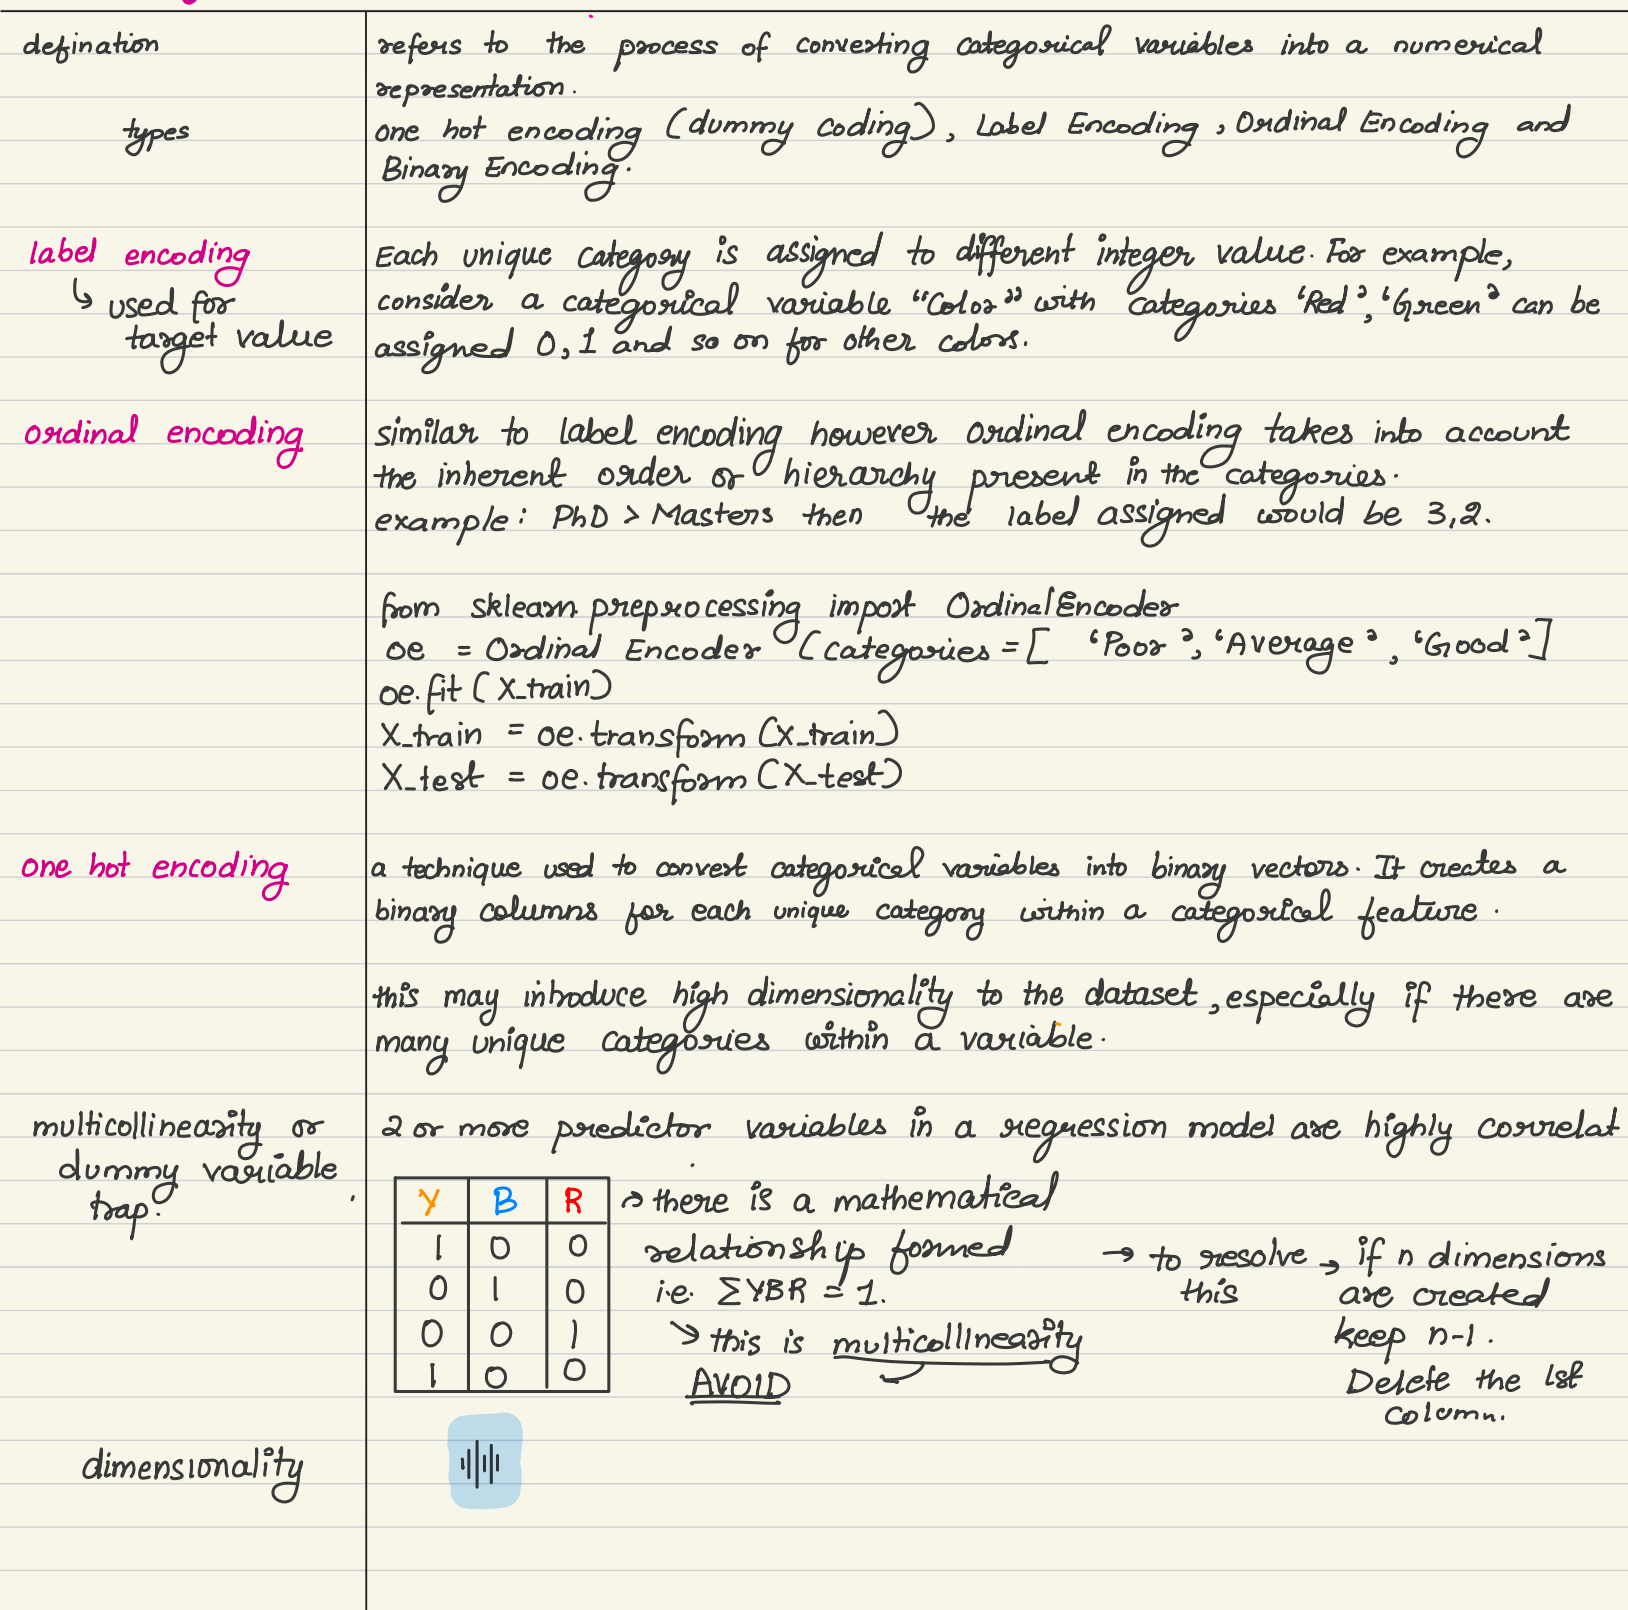 defination
refers to the process of converting categorical variables into a numerical
representation.
types
one hot encoding (dummy coding), Label Encoding, Ordinal Encoding and
Binary Encoding.
label encoding
↳ used for
target value
Each unique category is assigned to different integer value. For example,
consider a categorical variable "Color" with categories 'Red', 'Green' can be
assigned 0, 1 and so on for other colors.
ordinal encoding
similar to label encoding however ordinal encoding takes into account
the inherent order or hierarchy present in the categories.
example: PhD > Masters then the label assigned would be 3,2.
from sklearn.preprocessing import OrdinalEncoder
oe = Ordinal Encoder (categories = [ 'Poor', 'Average', 'Good']
oe.fit (X_train)
X_train = oe.transform (X_train)
X_test = oe.transform (X_test)
one hot encoding
a technique used to convert categorical variables into binary vectors. It creates a
binary columns for each unique category within a categorical feature.
this may introduce high dimensionality to the dataset, especially if there are
many unique categories within a variable.
multicollinearity or
dummy variable
trap.
2 or more predictor variables in a regression model are highly correlat
Y B R
1 0 0
0 1 0
0 0 1
1 0 0
→ there is a mathematical
relationship formed
i.e. ΣYBR = 1.
↘ this is multicollinearity
AVOID
→ to resolve
this
→ if n dimensions
are created
keep n-1.
Delete the 1st
column.
dimensionality